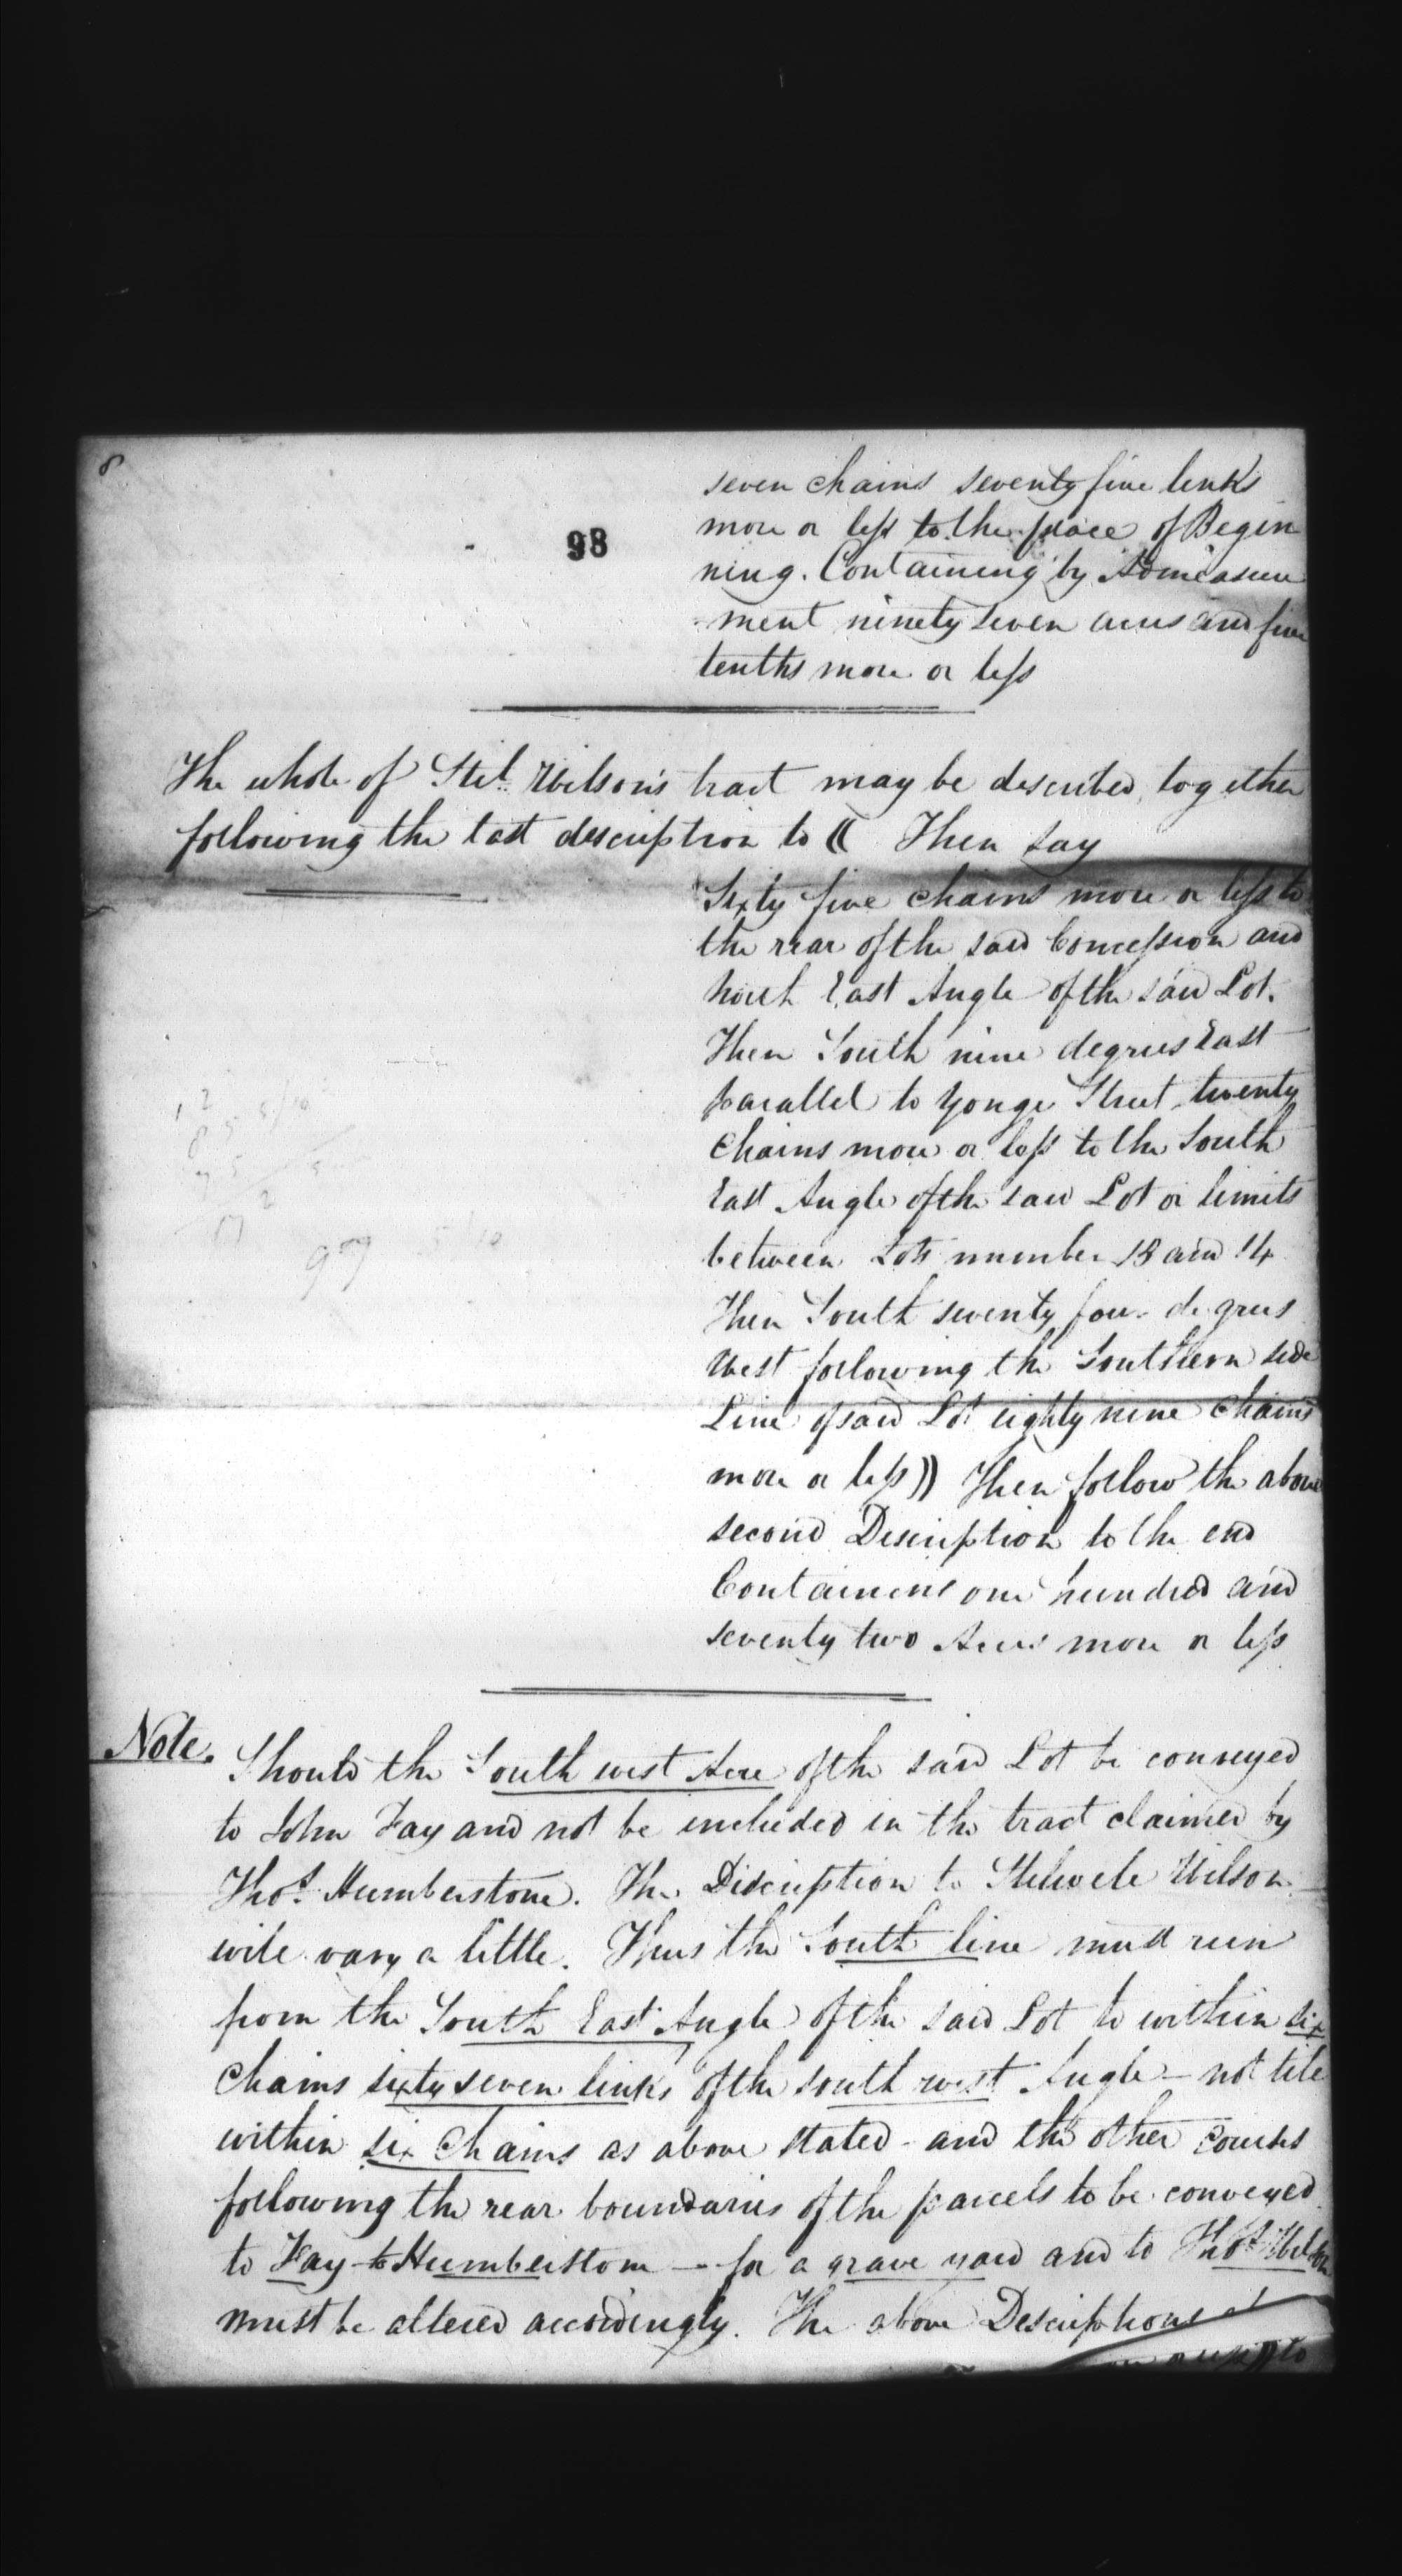 8
98
seven chains seventy five links
more or less to the place of Begin
ning. Containing by Admeasure
ment ninety seven acres and five
tenths more or less
The whole of Stil. Wilson's tract may be described together
following the last description to (( Then say
Sixty five chains more or less to
the rear of the said Concession and
North East Angle of the said Lot.
Then South nine degrees East
parallel to Yonge Street twenty
Chains more or less to the South
East Angle of the said Lot or limits
between Lots number 13 and 14
Then South seventy four degrees
West following the Southern side
Line of said Lot eighty nine chains
more or less )) Then follow the above
second Description to the end
Containing one hundred and
seventy two Acres more or less
Note. Should the South west Acre of the said Lot be conveyed
to John Fay and not be included in the tract claimed by
Thos. Humberstone. The Discription to Stilwele Wilson
wile vary a little. Thus the South line must run
from the South East Angle of the said Lot to within six
Chains sixty seven links of the south west Angle - not tile
within six Chains as above stated - and the other courses
following the rear boundaries of the parcels to be conveyed
to Fay to Humberstone - for a grave yard and to Thos. Wilson
must be altered accordingly. The above Descriptions
97 5/10